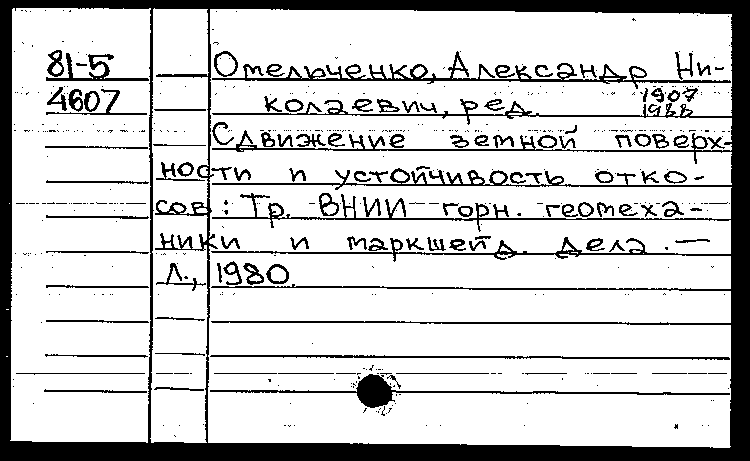 81-5 Омельченко, Александр Ни-
4607 колаевич, ред. 1907
1988
Сдвижение земной поверх-
ности и устойчивость отко-
сов: Тр. ВНИИ горн. геомеха-
ники и маркшейд. дела. —
Л., 1980.